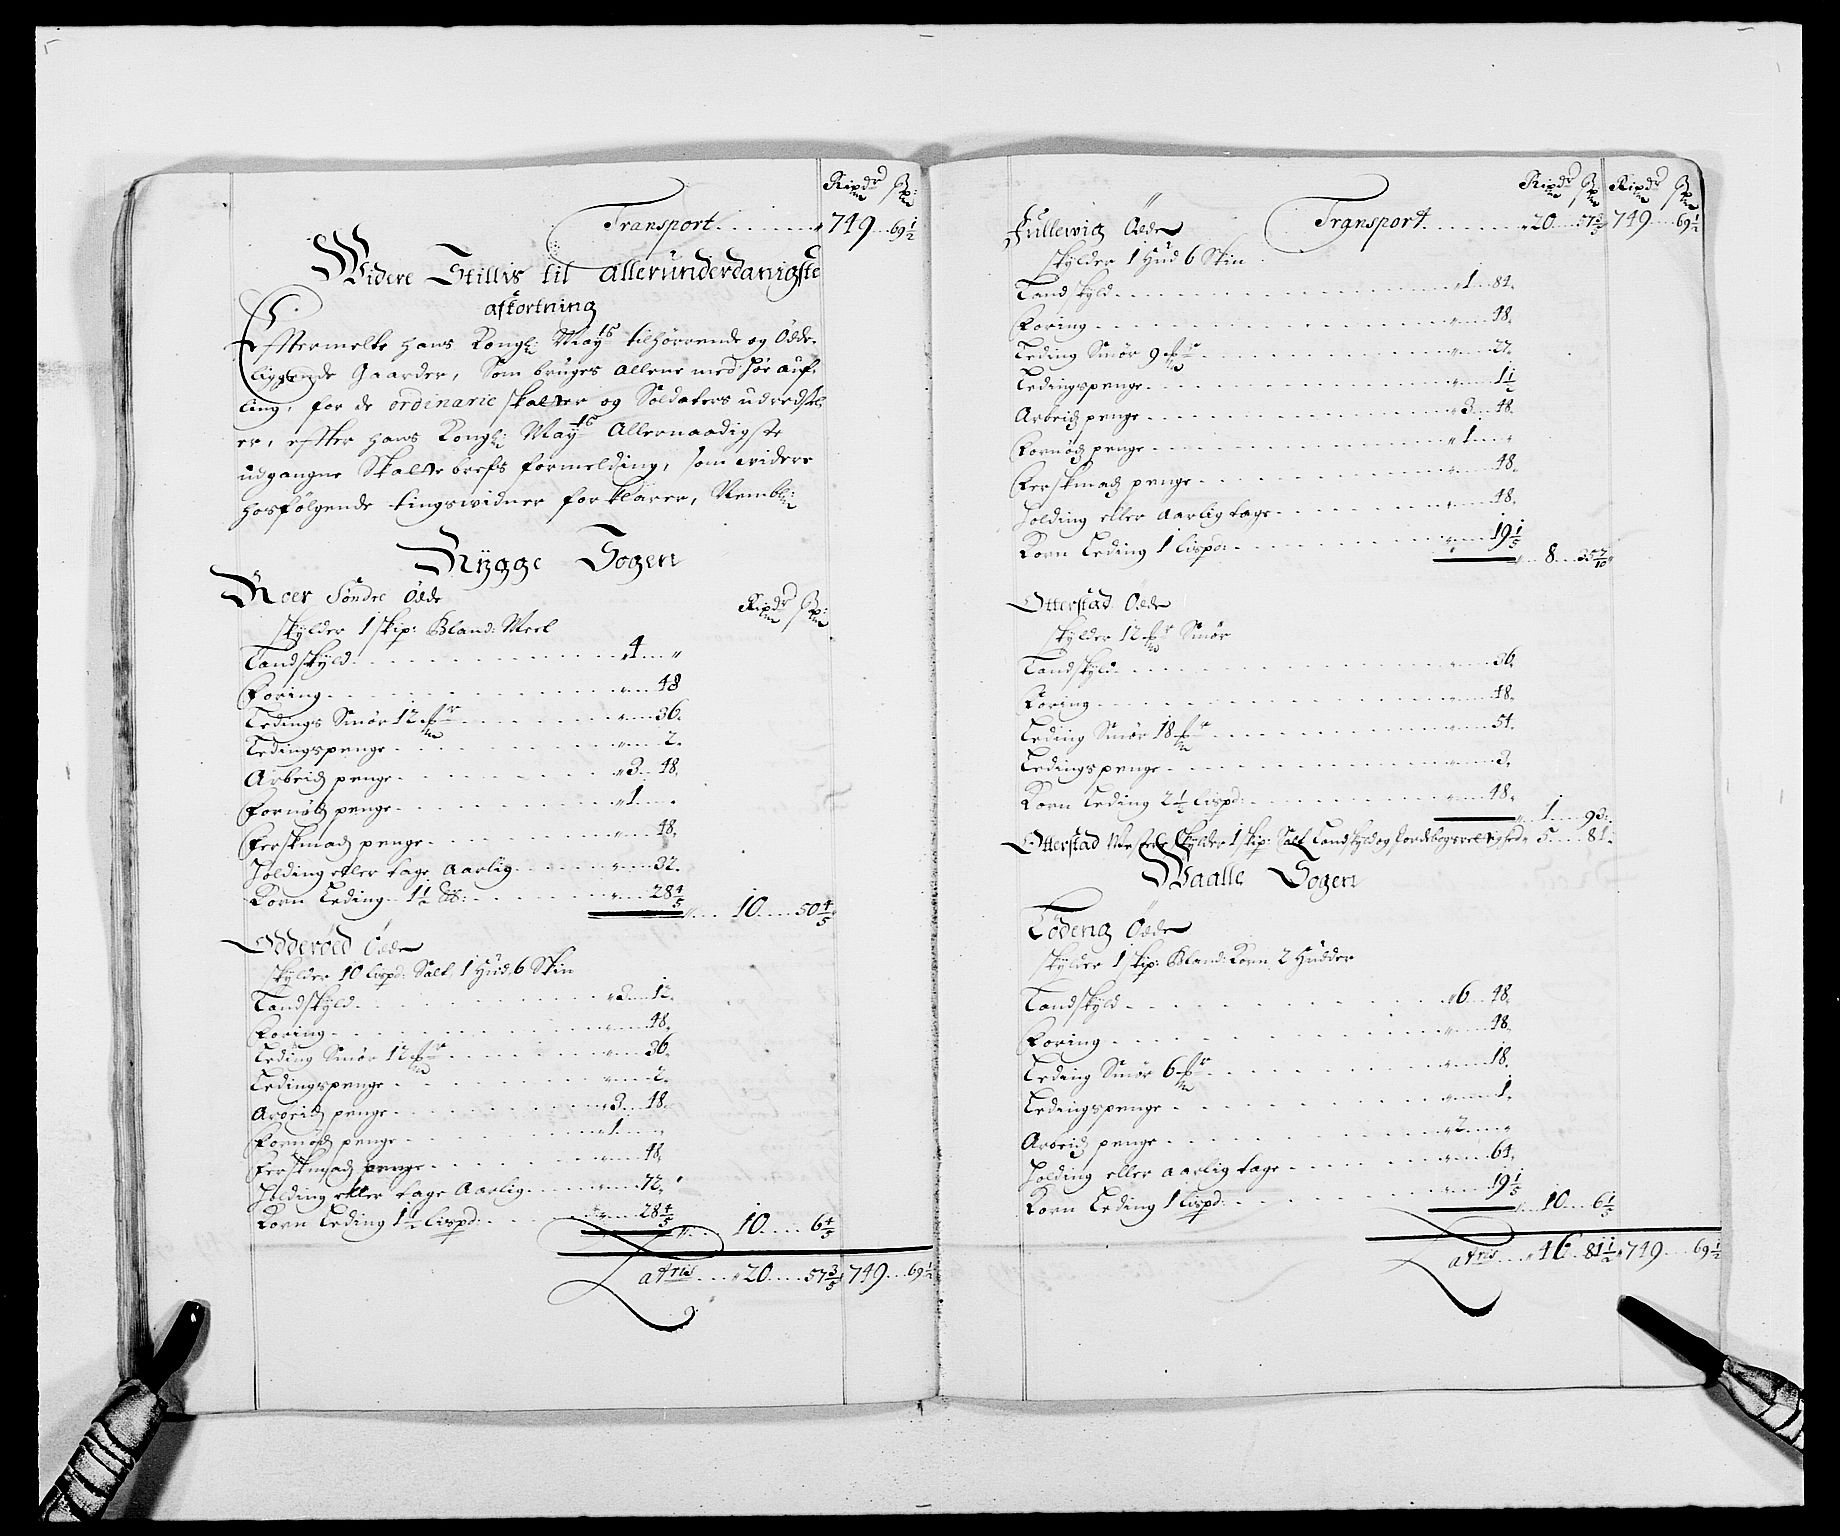 Ripdr ß:
Transport . . . . . . . . 749 . . 69½
Widere Stillis til allerunderdanigste
afkortning
Efftermelte hans Kongl: Mayts tilhørrende og Øde-
liggende Gaarder, Som bruges allene med før auf-
ling, for de ordinarie skatter og Soldaters udredsel-
er, effter hans Kongl: Mayts Allernaadigste
udgangne Skatte brefs formelding, som widere
hosfølgende tingswidner forklarer, Nembl:
Rygge Sogen
Roer Søndre Øde
Ripdr ß:
skylder 1 skip: Bland: Meel
Landskyld . . . . . 4 . . "
Foring . . . . . 48
Ledings Smør 12 . . . . . 36.
Ledingspenge . . . . . 2.
Arbeidz penge . . . . . 3 . . 48.
Fornødz penge . . . . . 1 . . .
Ferskmadz penge . . . . . 48.
Holding eller tage Aarlig . . . . . 32.
Korn Leding 1½ . . . . . 28⅘
10 . . . 50⅘
Odderøed Øde
skylder 10 lispd: Salt, 1 Hud 6 Skin
Landskyld . . . . . 3 . . 12.
Foring . . . . . 48.
Leding Smør 12 . . . . . 36.
Ledingspenge . . . . . 2.
Arbeidz penge . . . . . 3 . . 48.
Fornødz penge . . . . . 1 . . .
Ferskmadz penge . . . . . 48.
Holding eller tage Aarlig . . . . . 72.
Korn Leding 1½ Lispd: . . . . . 28⅘
10 . . . 6⅘
Latris . . . 20 . . . 57⅗ 749 . . 69½
Ripdr ß Ripdr ß
Fullewig Øde Transport . . . . . 20 . . 57⅗ 749 . . 69½
skylder 1 Hud 6 Skin
Landskyld . . . . . 1 . . 84.
Foring . . . . . 48.
Leding Smør 9 . . . . . 27.
Ledingspenge . . . . . 1½
Arbeidz penge . . . . . 3 . . 48.
Fornødz penge . . . . . 1 . . "
Ferskmadz penge . . . . . 48.
Holding eller Aarlig tage . . . . . 48.
Korn Leding 1 lispd: . . . . . 19⅕
8 . . . 35 7/10
Otterstad Øde
skylder 12 Smør
Landskyld . . . . . 36.
Foring . . . . . 48.
Leding Smør 18 . . . . . 54.
Ledingspenge . . . . . 3.
Korn Leding 2½ Lispd: . . . . . 48.
1 . . . 93.
Otterstad Westre skylder 1 skip: Salt Landskyld og bordlbogsrettighed 5 . . . 81.
Waalle Sogen
Lødeng Øde
skylder 1 skip: Bland: Korn 2 Hudder
Landskyld . . . . . 6 . . 48.
Foring . . . . . 48.
Leding Smør 6 . . . . . 18.
Ledingspenge . . . . . 1.
Arbeidz penge . . . . . 2 . . "
Holding eller aarlig tage . . . . . 64.
Korn Leding 1 lispd: . . . . . 19⅕
10 . . . 6⅕
Latris . . . 46 . . 81½ 749 . . 69½